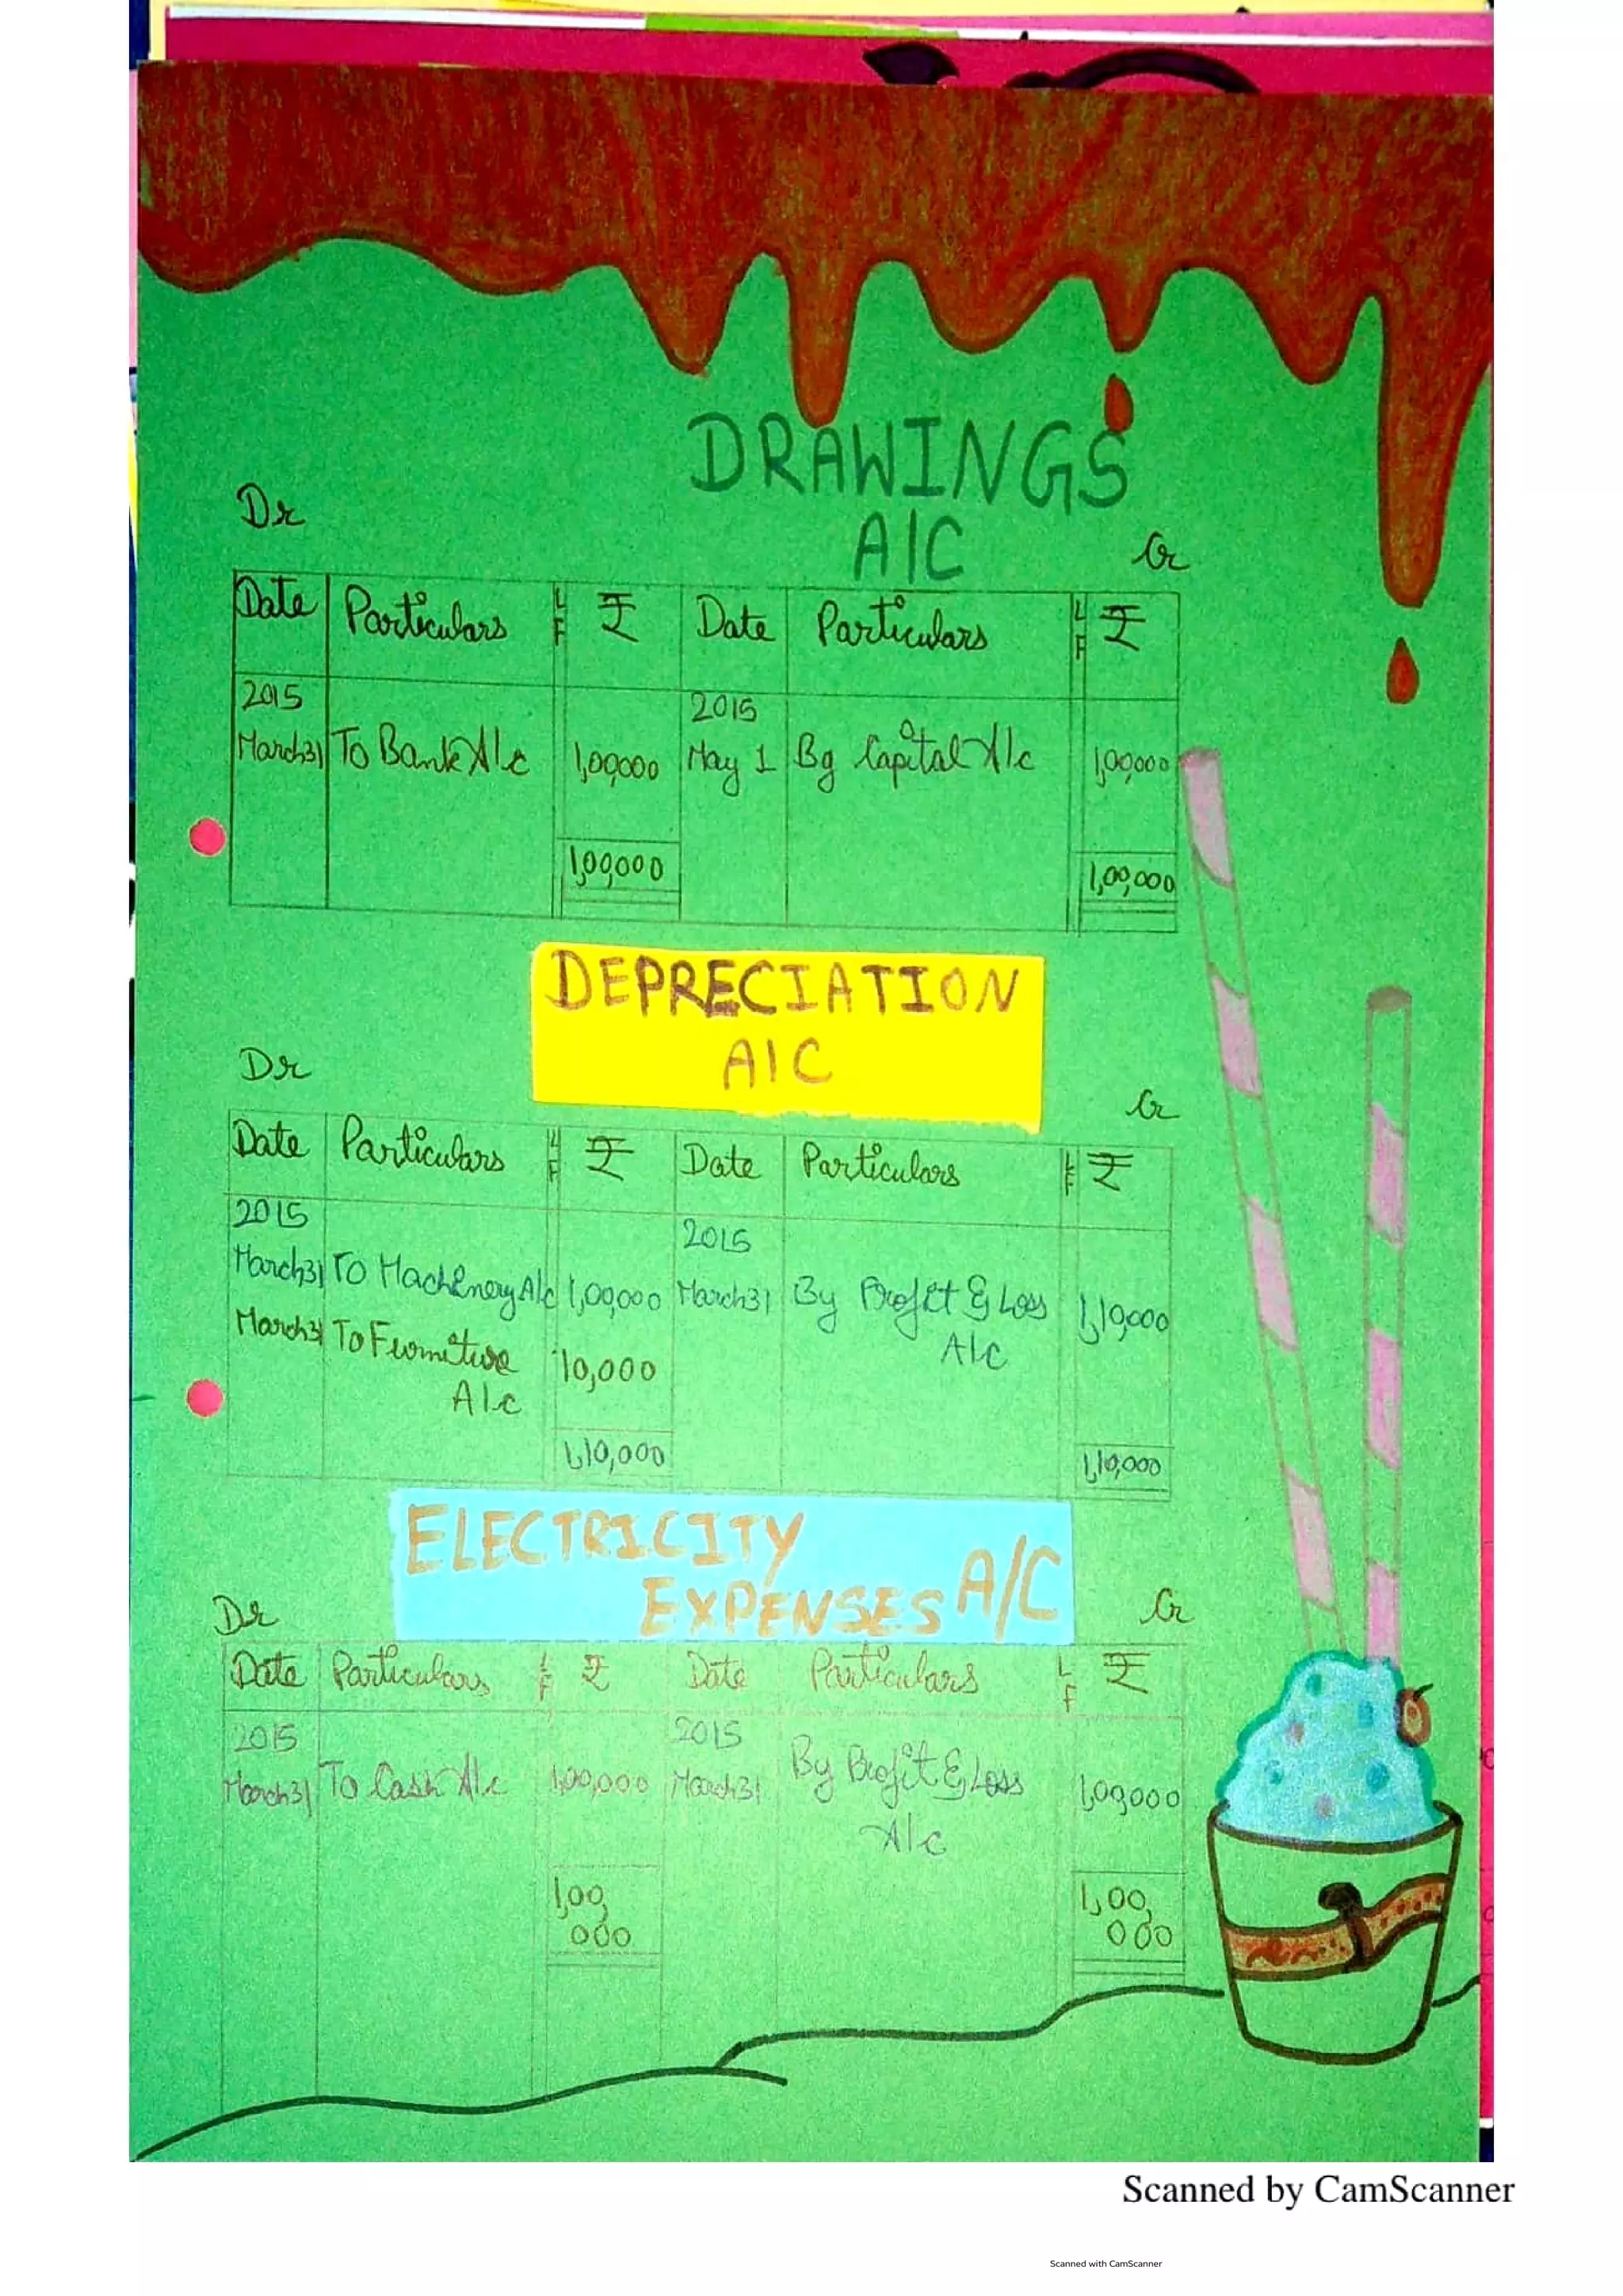 DRAWINGS
A/C
Dr Cr
Date Particulars LF ₹ Date Particulars LF ₹
2015 2015
March31 To Bank A/c 1,00,000 May 1 By Capital A/c 1,00,000
1,00,000 1,00,000
DEPRECIATION
A/C
Dr Cr
Date Particulars LF ₹ Date Particulars LF ₹
2015 2015
March31 To Machinery A/c 1,00,000 March31 By Profit & Loss 1,10,000
March31 To Furniture 10,000 A/c
A/c
1,10,000 1,10,000
ELECTRICITY
EXPENSES A/C
Dr Cr
Date Particulars LF ₹ Date Particulars LF ₹
2015 2015
March31 To Cash A/c 1,00,000 March31 By Profit & Loss 1,00,000
A/c
1,00, 1,00,
000 000
Scanned by CamScanner
Scanned with CamScanner